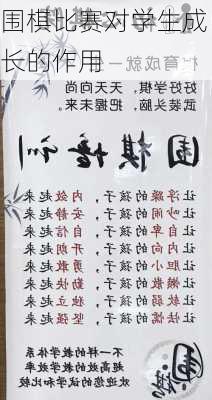 围棋比赛对学生成
长的作用
育成就一
好学棋，天天向
武装头脑，把握未来
围棋培训
让浮躁的孩子，内敛起来
让吵闹的孩子，安静起来
让自卑的孩子，自信起来
让内向的孩子，开朗起来
让胆小的孩子，勇敢起来
让懒散的孩子，勤快起来
让软弱的孩子，独立起来
让怯懦的孩子，坚强起来
不一样的教学体系
高速高效的教学效率
欢迎您的试学和比较
围棋